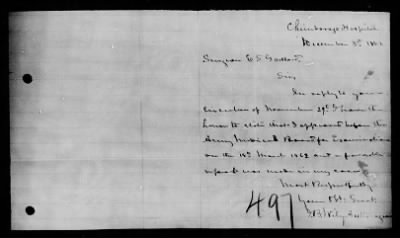 Chimborazo Hospital
December 3d 186
Surgeon E. S. Gaillard,
Sir
In reply to your
of November 29th I have the
honor to state that I appeared before the
Army Medical Board for Examination
on the 18th March 1862 and a favorable
report was made in my case.
Most Respectfully
Your Obt. Servt.
497